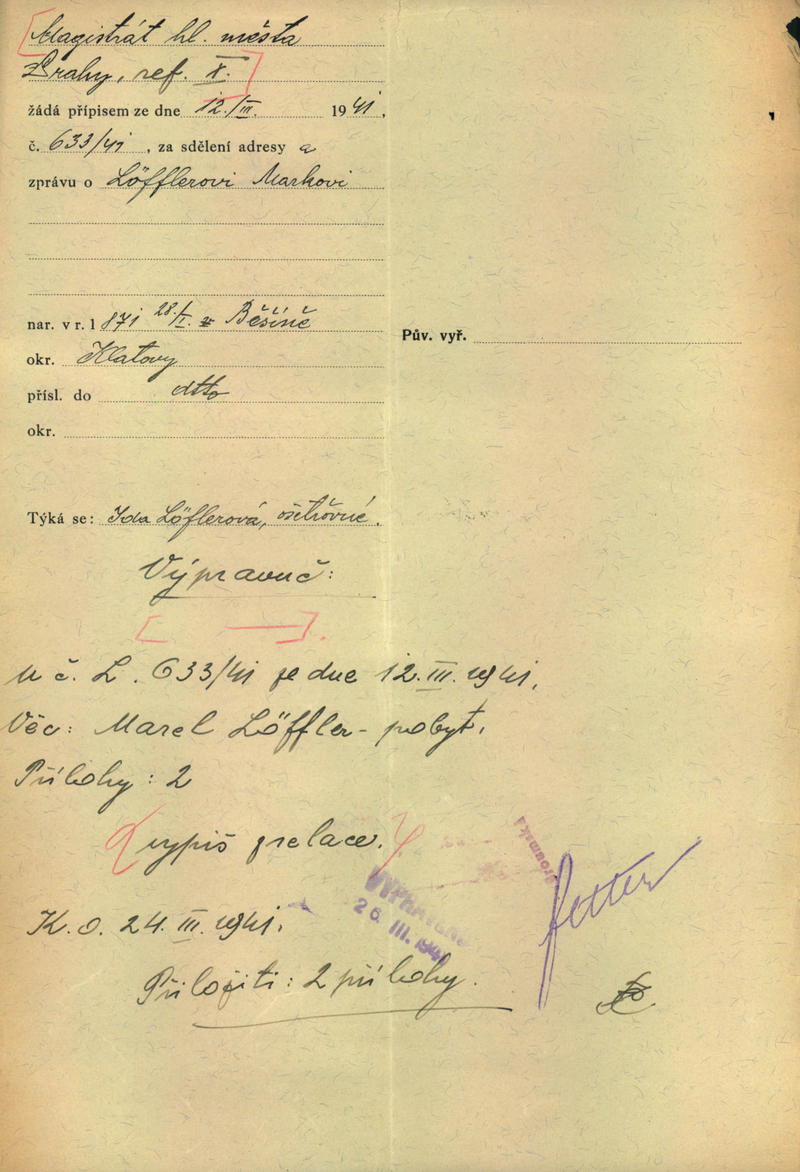 Magistrát hl. města
Prahy, ref. X.
žádá přípisem ze dne 12./III. 1941,
č. 633/41, za sdělení adresy a
zprávu o Löfflerovi Markovi
nar. v r. 1871 28./I. v Běšíně
okr. Klatovy
Pův. vyř.
přísl. do dtto
okr.
Týká se: Ida Löflerová, ošetřovné.
Výpravně:
K č. L. 633/41 ze dne 12. III. 1941.
Věc: Marel Löffler - pobyt.
Přílohy: 2
výpis z relace.
K. o. 24. III. 1941.
26 III. 1941
Přiložiti: 2 přílohy.